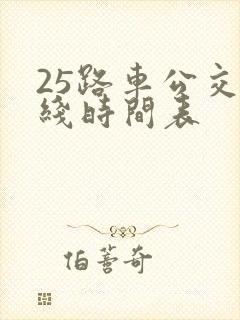 25路車公交
綫時間表
伯蓍奇